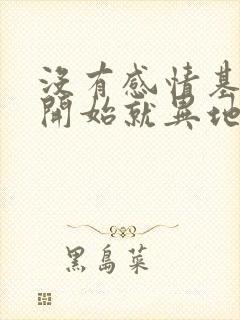 沒有感情基
開始就異地
黑島菜